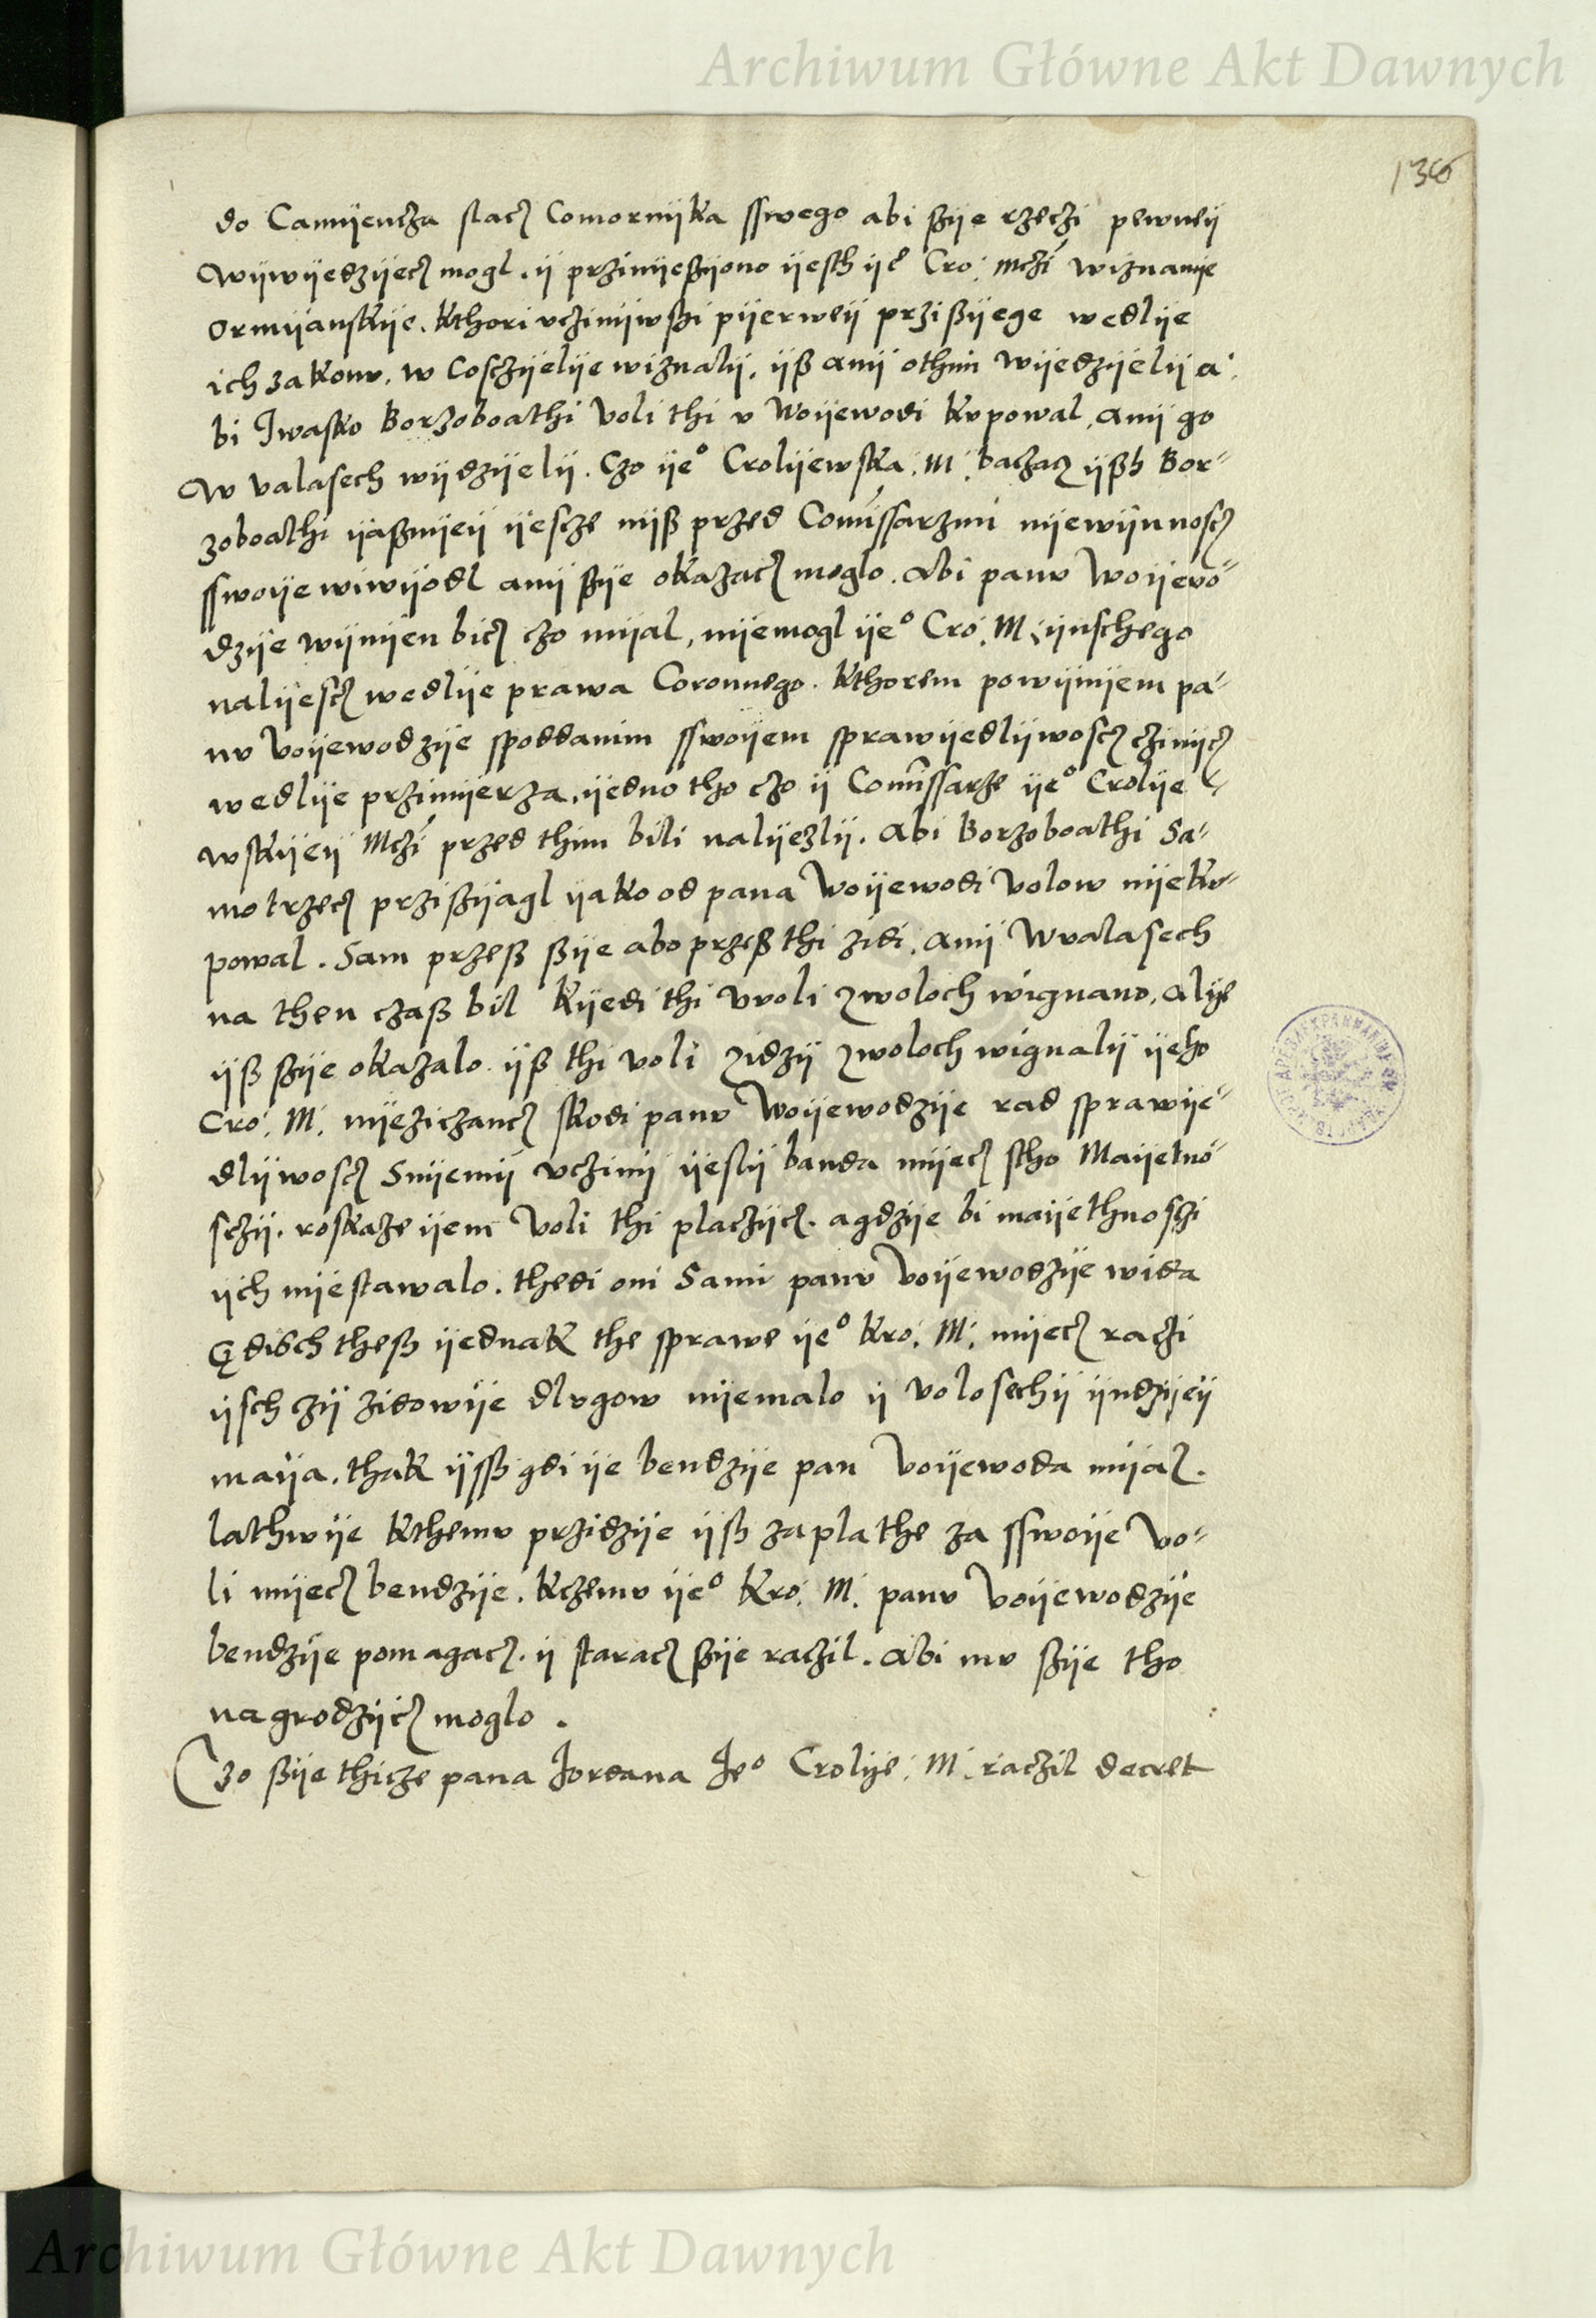 Archiwum Główne Akt Dawnych
136
do Camÿencza slacz Comornÿka sswego abi ßÿe rzeczi pewneÿ
wÿwÿedzÿecz mogl. ÿ przinÿeßÿono ÿesth ÿe° Cro: Mczi wiznanÿe
Ormÿanskÿe. Kthori vczinÿwßi pÿerweÿ przißÿege wedlÿe
ich zakonv. w Cosczÿelÿe wiznalÿ. ÿß anÿ othim wÿedzÿelÿ a
bi Iwasko Borzoboathi Voli thi v Woÿewodi kvpowal, anÿ go
W valasech wÿdzÿelÿ. Czo ÿe° Crolÿewska: M: baczacz ÿßh Bor-
zoboathi ÿaßnÿeÿ ÿescze nÿß przed Comissarzmi nÿewÿnnoscz
sswoÿe wiwÿodl anÿ ßÿe okazacz moglo. Abi panv Woÿewo-
dzÿe wÿnÿen bicz czo mÿal, nÿemogl ÿe° Cro: M: ÿnschego
nalÿescz wedlÿe prawa Coronnego. Kthorem powÿnÿem pa-
nv Voÿewodzÿe spoddanim sswoÿem sprawÿedlÿwoscz czinÿcz
wedlÿe przimÿerza, ÿedno tho czo ÿ Comissarze ÿe° Crolÿe
wskÿeÿ Mczi przed thim bili nalÿezlÿ. Abi Borzoboathi Sa-
motrzecz przißÿagl ÿako od pana Woÿewodi Volow nÿekv-
powal. Sam przeß ßÿe abo przeß thi zidi. anÿ Wvalasech
na then czaß bil kÿedi thi Vvoli zwoloch wignano. Alÿe
ÿß ßÿe okazalo. ÿß thi voli zidzÿ zwoloch wignalÿ ÿeho
Cro: M: nÿeziczancz skodi panv Woÿewodzÿe rad sprawÿe-
dlÿwoscz Snÿemÿ vczinÿ ÿeslÿ banda mÿecz stho Maÿetno-
sczÿ. roskaze ÿem Voli thi placzÿcz. agdzÿe bi maÿethnosczi
ÿch nÿestawalo. thedi oni Sami panv Voÿewodzÿe wida
Gdibch theß ÿednak the sprawe ÿe° Kro: M: mÿecz raczi
ÿsch czÿ zidowÿe dlvgow nÿemalo ÿ volosechÿ ÿndzÿeÿ
maÿa. thak ÿssß gdi ÿe bendzÿe pan Voÿewoda mÿal.
lathwÿe kthemv przidzÿe ÿsß zaplathe za sswoÿe Vo-
li mÿecz bendzÿe. kczemv ÿe° Kro: M: panv Voÿewodzÿe
bendzÿe pomagacz. ÿ staracz ßÿe raczil. Abi mv ßÿe tho
nagrodzÿcz moglo.
Czo ßÿe thicze pana Iordana Ie° Crolÿe: M: raczil decret
Archiwum Główne Akt Dawnych